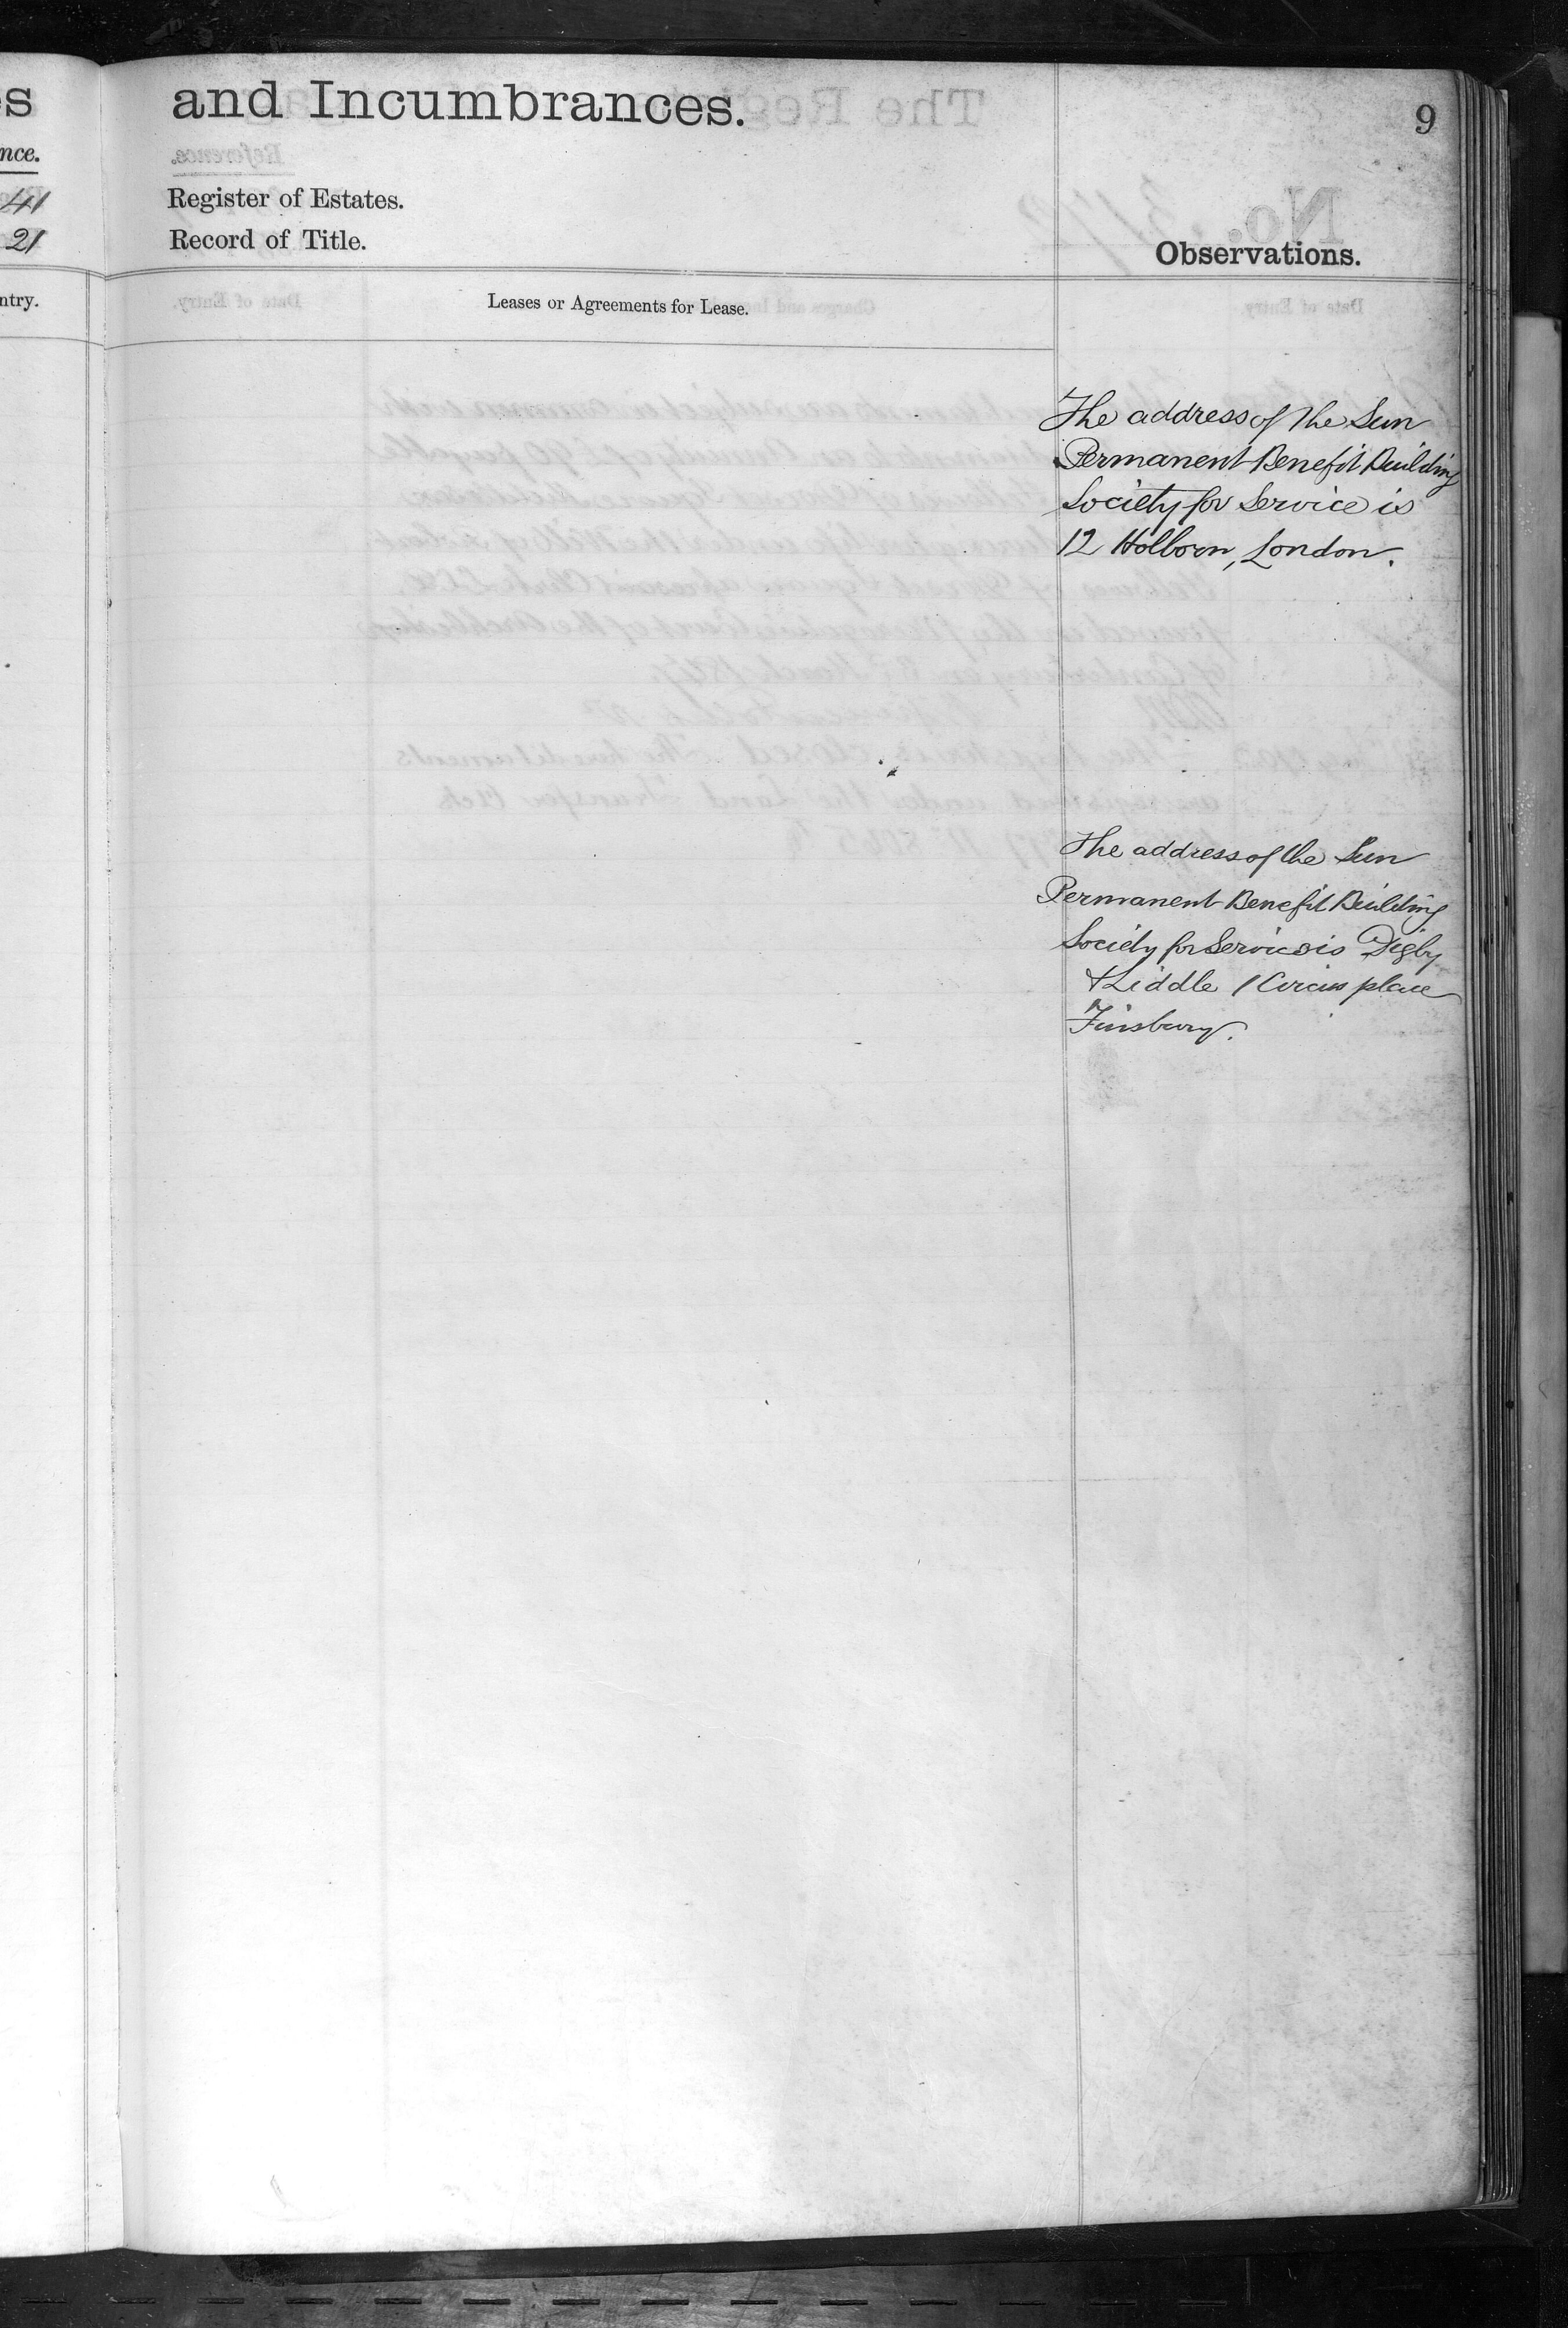 es
and Incumbrances.
9
nce.
Register of Estates.
41
Record of Title.
21
Observations.
ntry.
Leases or Agreements for Lease.
The address of the Sun
Permanent Benefit Building
Society for Service is
12 Holborn, London.
The address of the Sun
Permanent Benefit Building
Society for Service is Digby
& Liddle 1 Circus place
Finsbury.